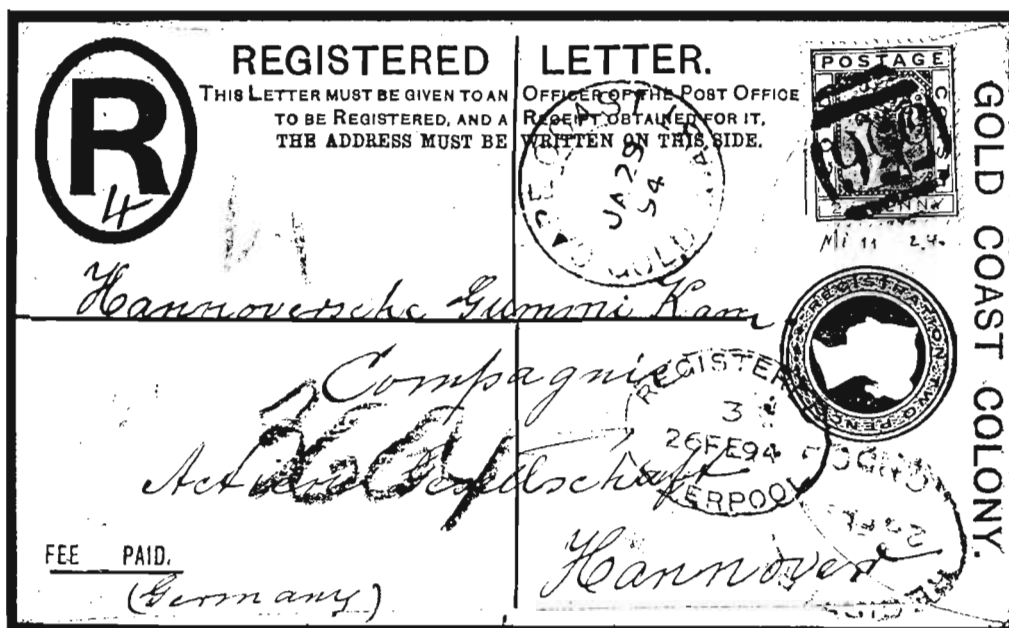 REGISTERED LETTER.
THIS LETTER MUST BE GIVEN TO AN OFFICER OF THE POST OFFICE
TO BE REGISTERED, AND A RECEIPT OBTAINED FOR IT.
THE ADDRESS MUST BE WRITTEN ON THIS SIDE.
R
4
POSTAGE
Mi 11 2.40
GOLD COAST COLONY.
CAPE COAST
JA 29
94
GOLD
Hannoversche Gummi Kam
Compagnie
Actien Gesellschaft
Hannover
(Germany)
3664
REGISTRATION TWO PENCE
REGISTERED
3
26FE94
LIVERPOOL
FEE PAID.